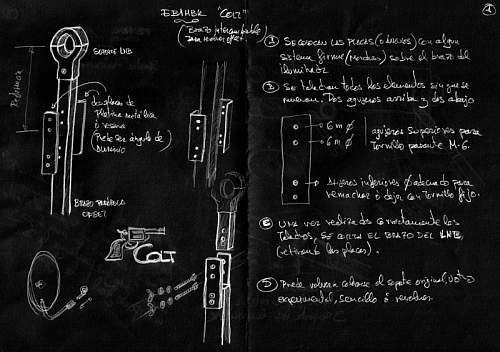 EB1HBK "COLT"
(Brazo intercambiable
para
SOPORTE LNB
Referencia
Pletina metálica
o resina
(Puede ser ángulo de
aluminio)
BRAZO PARÁBOLA
OFFSET
COLT
1
1 SE COLOCAN LAS PLACAS (o ángulos) con algún
sistema firme (mordazas) sobre el brazo del
iluminador
2 Se taladran todos los elementos sin que se
muevan. Dos agujeros arriba y dos abajo
6 m Ø
6 m Ø
agujeros superiores para
tornillo pasante M-6.
agujeros inferiores Ø adecuado para
remachar o dejar con tornillo fijo.
UNA VEZ realizados correctamente los
taladros, SE CORTA EL BRAZO DEL LNB
(retirando las placas).
Puede volverse a colocar el soporte original, u otro
experimental, sencillo ó revolver.